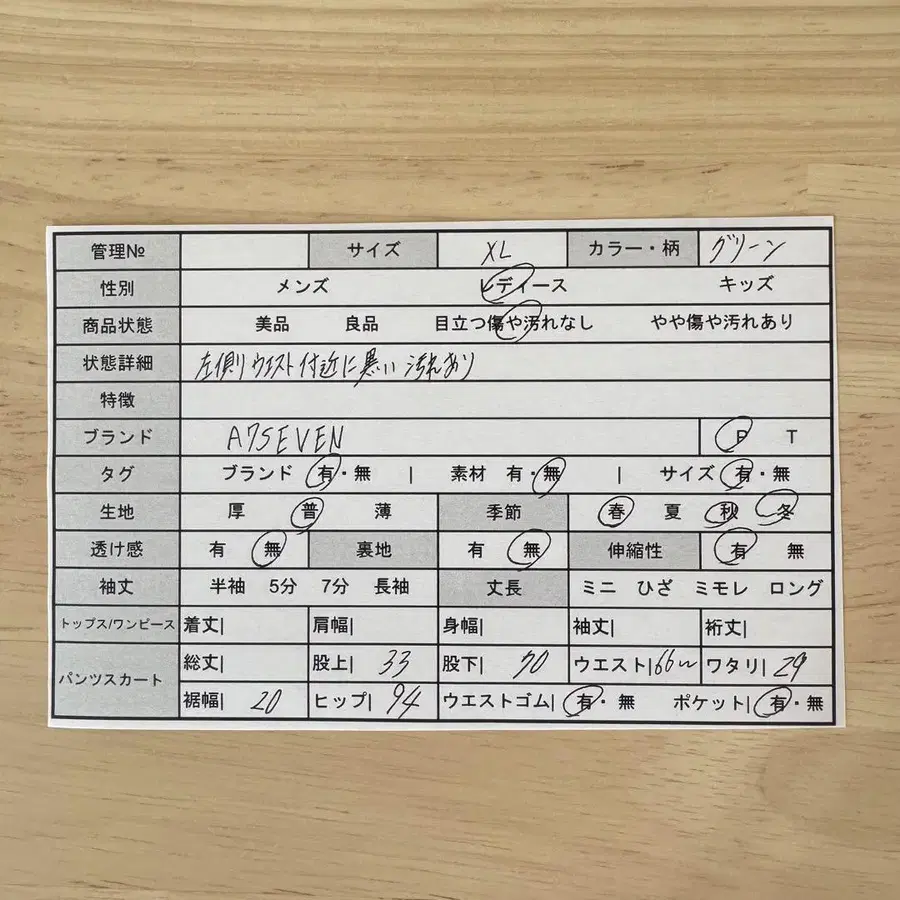 管理№ サイズ XL カラー・柄 グリーン
性別 メンズ レディース キッズ
商品状態 美品 良品 目立つ傷や汚れなし やや傷や汚れあり
状態詳細 左側ウエスト付近に黒い汚れあり
特徴
ブランド A7SEVEN P T
タグ ブランド 有・無 | 素材 有・無 | サイズ 有・無
生地 厚 普 薄 季節 春 夏 秋 冬
透け感 有 無 裏地 有 無 伸縮性 有 無
袖丈 半袖 5分 7分 長袖 丈長 ミニ ひざ ミモレ ロング
トップス/ワンピース 着丈| 肩幅| 身幅| 袖丈| 裄丈|
パンツスカート 総丈| 股上| 33 股下| 70 ウエスト| 66〜 ワタリ| 29
裾幅| 20 ヒップ| 94 ウエストゴム| 有・無 ポケット| 有・無